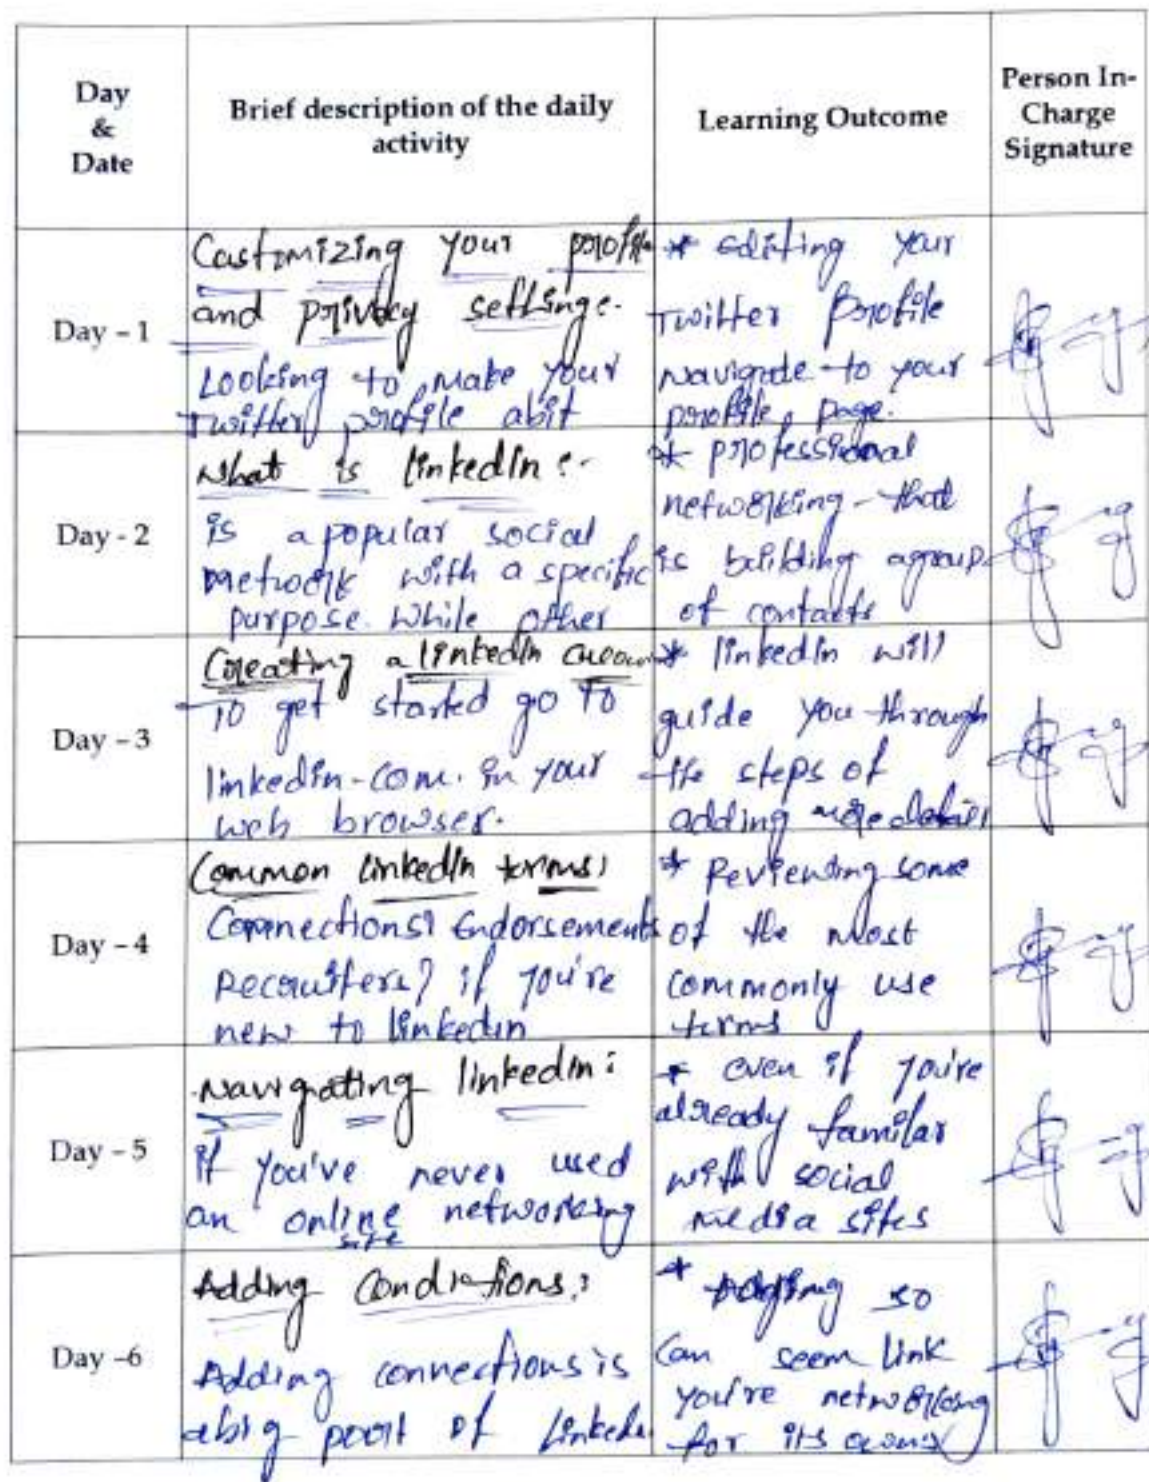 Day
&
Date
Brief description of the daily
activity
Learning Outcome
Person In-
Charge
Signature
Day – 1
Castomizing your profile
and privacy settings.
Looking to make your
Twitter profile abit
* editing your
Twitter Profile
Navigate to your
profile page.
Day - 2
What is linkedIn :-
is a popular social
network with a specific
purpose. While other
* professional
networking - that
is building a group
of contacts
Day – 3
Creating a linkedIn
To get started go to
linkedin-com. in your
web browser.
* linkedin will
guide you through
the steps of
adding more
Day – 4
Common linkedIn terms:
Connections? Endorsements
Recruiters? if you're
new to linkedin
* Reviewing some
of the most
commonly use
terms
Day – 5
Navigating linkedIn :
if you've never used
an online networking
site
* even if you're
already familar
with social
media sites
Day –6
Adding
Adding connections is
a big part of
* so
can seem link
you're networking
for its